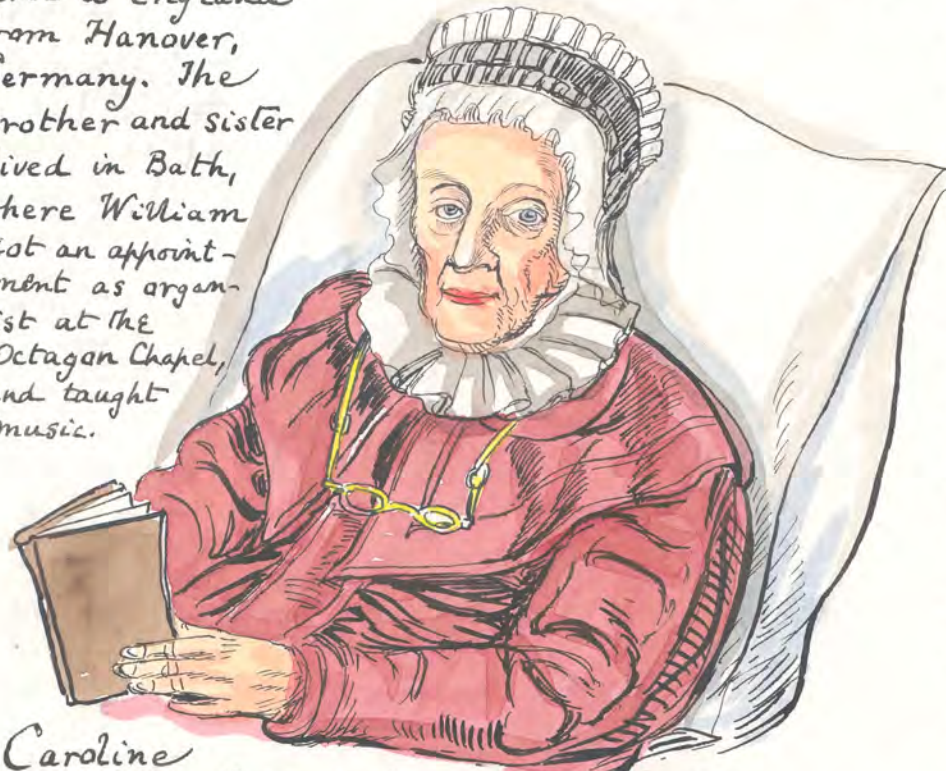 to England
rom Hanover,
ermany. The
rother and sister
ived in Bath,
here William
ot an appoint-
ment as organ-
ist at the
Octagon Chapel,
nd taught
music.
Caroline